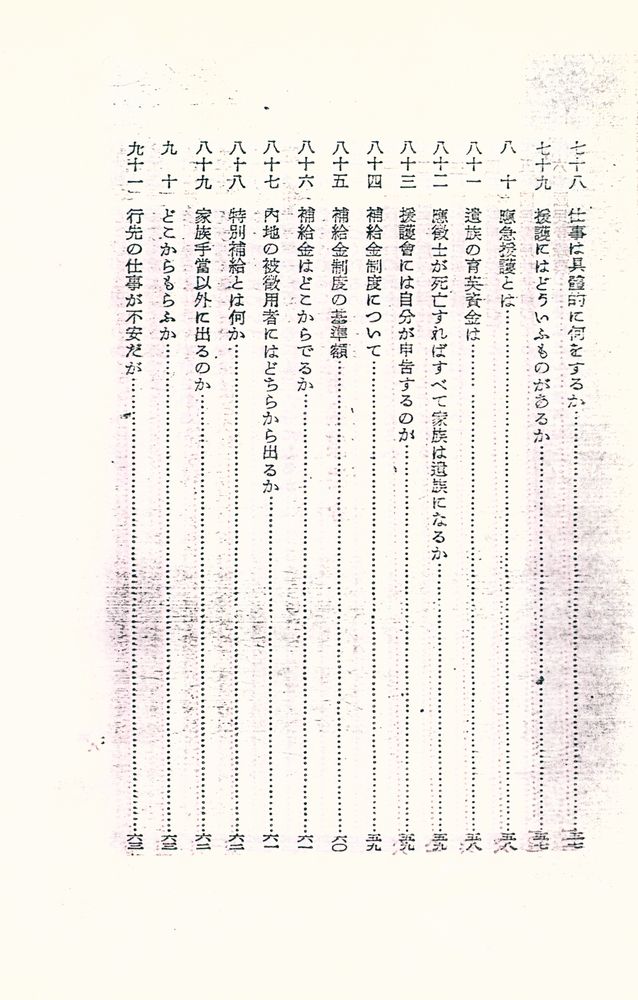 七十八 仕事は具體的に何をするか……五七
七十九 援護にはどういふものがあるか……五七
八十 應急援護とは……五八
八十一 遺族の育英資金は……五八
八十二 應徴士が死亡すればすべて家族は遺族になるか……五九
八十三 援護會には自分が申告するのか……五九
八十四 補給金制度について……五九
八十五 補給金制度の基準額……六〇
八十六 補給金はどこからでるか……六一
八十七 內地の被徴用者にはどちらから出るか……六一
八十八 特別補給とは何か……六二
八十九 家族手當以外に出るのか……六二
九十 どこからもらふか……六三
九十一 行先の仕事が不安だが……六三